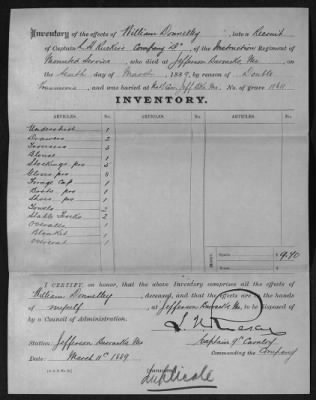 Inventory of the effects of William Donnelley, late a Recruit
of Captain L. H. Rucker's Company "B", of the Instruction Regiment of
Mounted Service, who died at Jefferson Barracks Mo., on
the tenth day of March, 1889, by reason of Double
Pneumonia, and was buried at Jeff. Bks. Mo. No. of grave
INVENTORY.
ARTICLES. No. ARTICLES. No.
Undershirt 1
Drawers 2
Trousers
Blouse 1
Stockings prs 5
Gloves prs
Forage Cap 1
Boots prs 1
Shoes prs 1
Towels 2
Stable Frocks 2
Overalls 1
Blanket 1
Overcoat 1
Money, $9.40
I CERTIFY, on honor, that the above Inventory comprises all the effects of
William Donnelley, deceased, and that the effects are in the hands
of myself, at Jefferson Barracks Mo, to be disposed of
by a Council of Administration.
Station: Jefferson Barracks Mo
Captain 9" Cavalry
Date: March 11" 1889
Commanding the Company
Duplicate